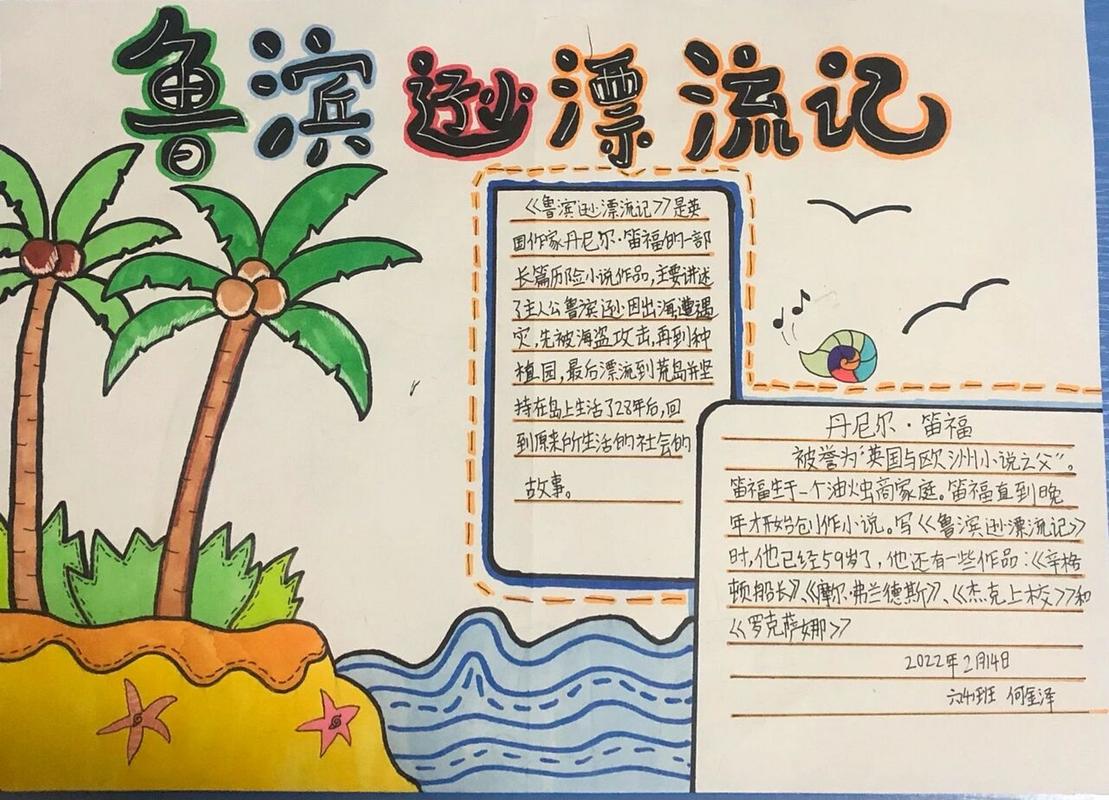 鲁滨逊漂流记
《鲁滨逊漂流记》是英
国作家丹尼尔·笛福的一部
长篇历险小说作品,主要讲述
了主人公鲁滨逊因出海遭遇
灾,先被海盗攻击,再到种
植园,最后漂流到荒岛并坚
持在岛上生活了28年后,回
到原来所生活的社会的
故事。
丹尼尔·笛福
被誉为“英国与欧洲小说之父”。
笛福生于一个油烛商家庭。笛福直到晚
年才开始创作小说。写《鲁滨逊漂流记》
时,他已经59岁了,他还有一些作品:《辛格
顿船长》、《摩尔·弗兰德斯》、《杰克上校》和
《罗克萨娜》
2022年2月14日
班 何金泽